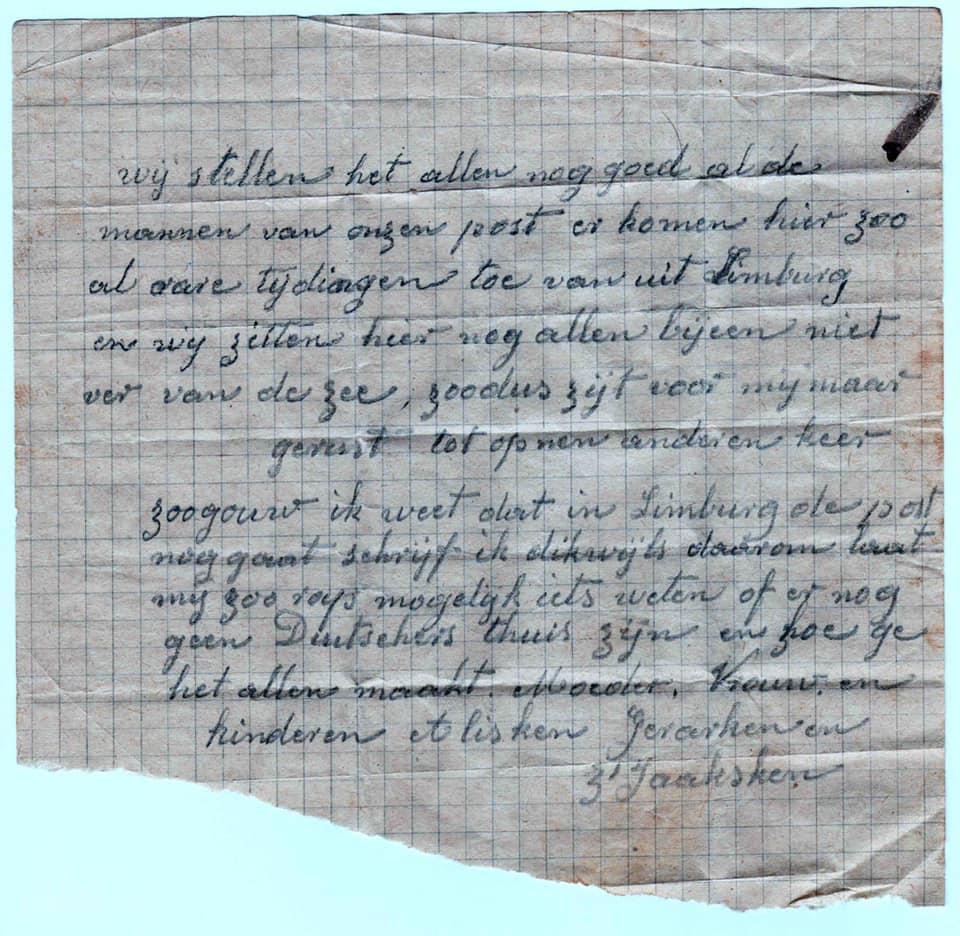 wij stellen het allen nog goed al de
mannen van onzen post er komen hier zoo
al rare tijdingen toe van uit Limburg
en wij zitten hier nog allen bijeen niet
ver van de zee, zoodus zijt voor mij maar
gerust tot op nen anderen keer
zoogouw ik weet dat in Limburg de post
nog gaat schrijf ik dikwijls daarom laat
mij zoo raps mogelijk iets weten of er nog
geen Duitschers thuis zijn en hoe ge
het allen maakt. Moeder, Vrouw. en
kinderen Lisken Gerarken en
z'Jaaksken.